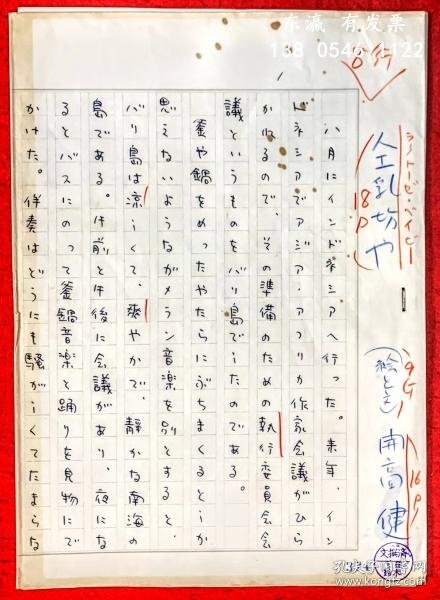 人工乳坊や
18P
(絵と文) 開高 健
16P
八月にインドネシアへ行った。来年、イン
ドネシアでアジア・アフリカ作家会議がひら
かれるので、その準備のための執行委員会会
議というものをバリ島でしたのである。
釜や鍋をめったやたらにぶちまくるとしか
思えないようなガメラン音楽を別とすると、
バリ島は涼しくて、爽やかで、静かな南海の
島である。午前と午後に会議があり、夜にな
るとバスにのって釜鍋音楽と踊りを見物にで
かけた。伴奏はどうにも騒がしくてたまらな
东瀛 有发票
孔夫子旧书网
www.kongfz.com